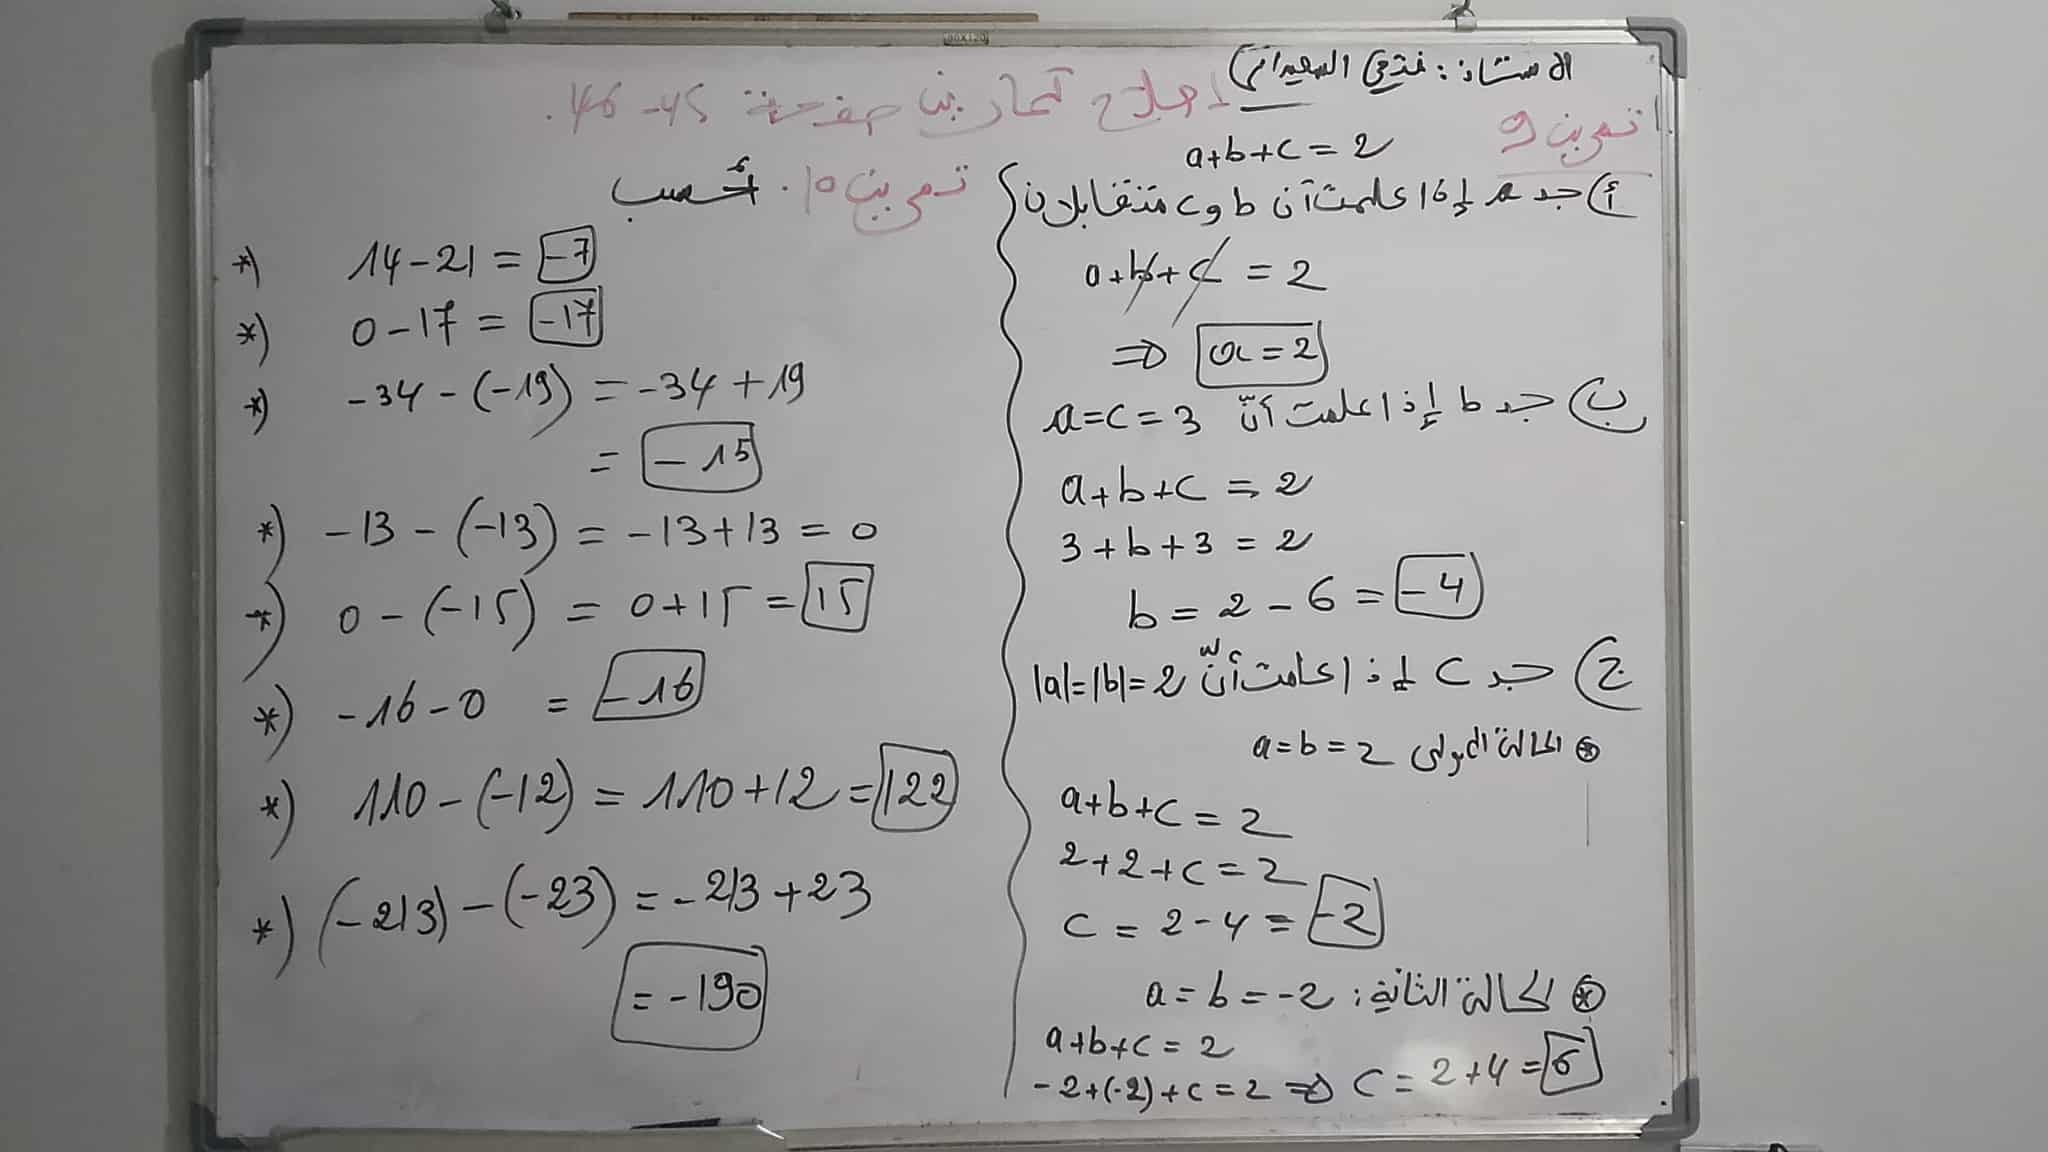 الاستاذ: فتحي السعيداني
اصلاح تمارين صفحة 45-46.
تمرين 9
a+b+c=2
أ) جد a إذا علمت أن b و c متقابلان
a+b+c = 2
⇒ a=2
ب) جد b إذا علمت أنّ a=c=3
a+b+c = 2
3+b+3 = 2
b = 2-6 = -4
ج) جد c إذا علمت أنّ |a|=|b|=2
* الحالة الاولى a=b=2
a+b+c=2
2+2+c=2
c = 2-4 = -2
* الحالة الثانية: a=b=-2
a+b+c=2
-2+(-2)+c=2 ⇒ c=2+4=6
تمرين 10. أحسب
*) 14-21 = -7
*) 0-17 = -17
*) -34-(-19) = -34+19
= -15
*) -13-(-13) = -13+13 = 0
*) 0-(-15) = 0+15 = 15
*) -16-0 = -16
*) 110-(-12) = 110+12 = 122
*) (-213)-(-23) = -213+23
= -190